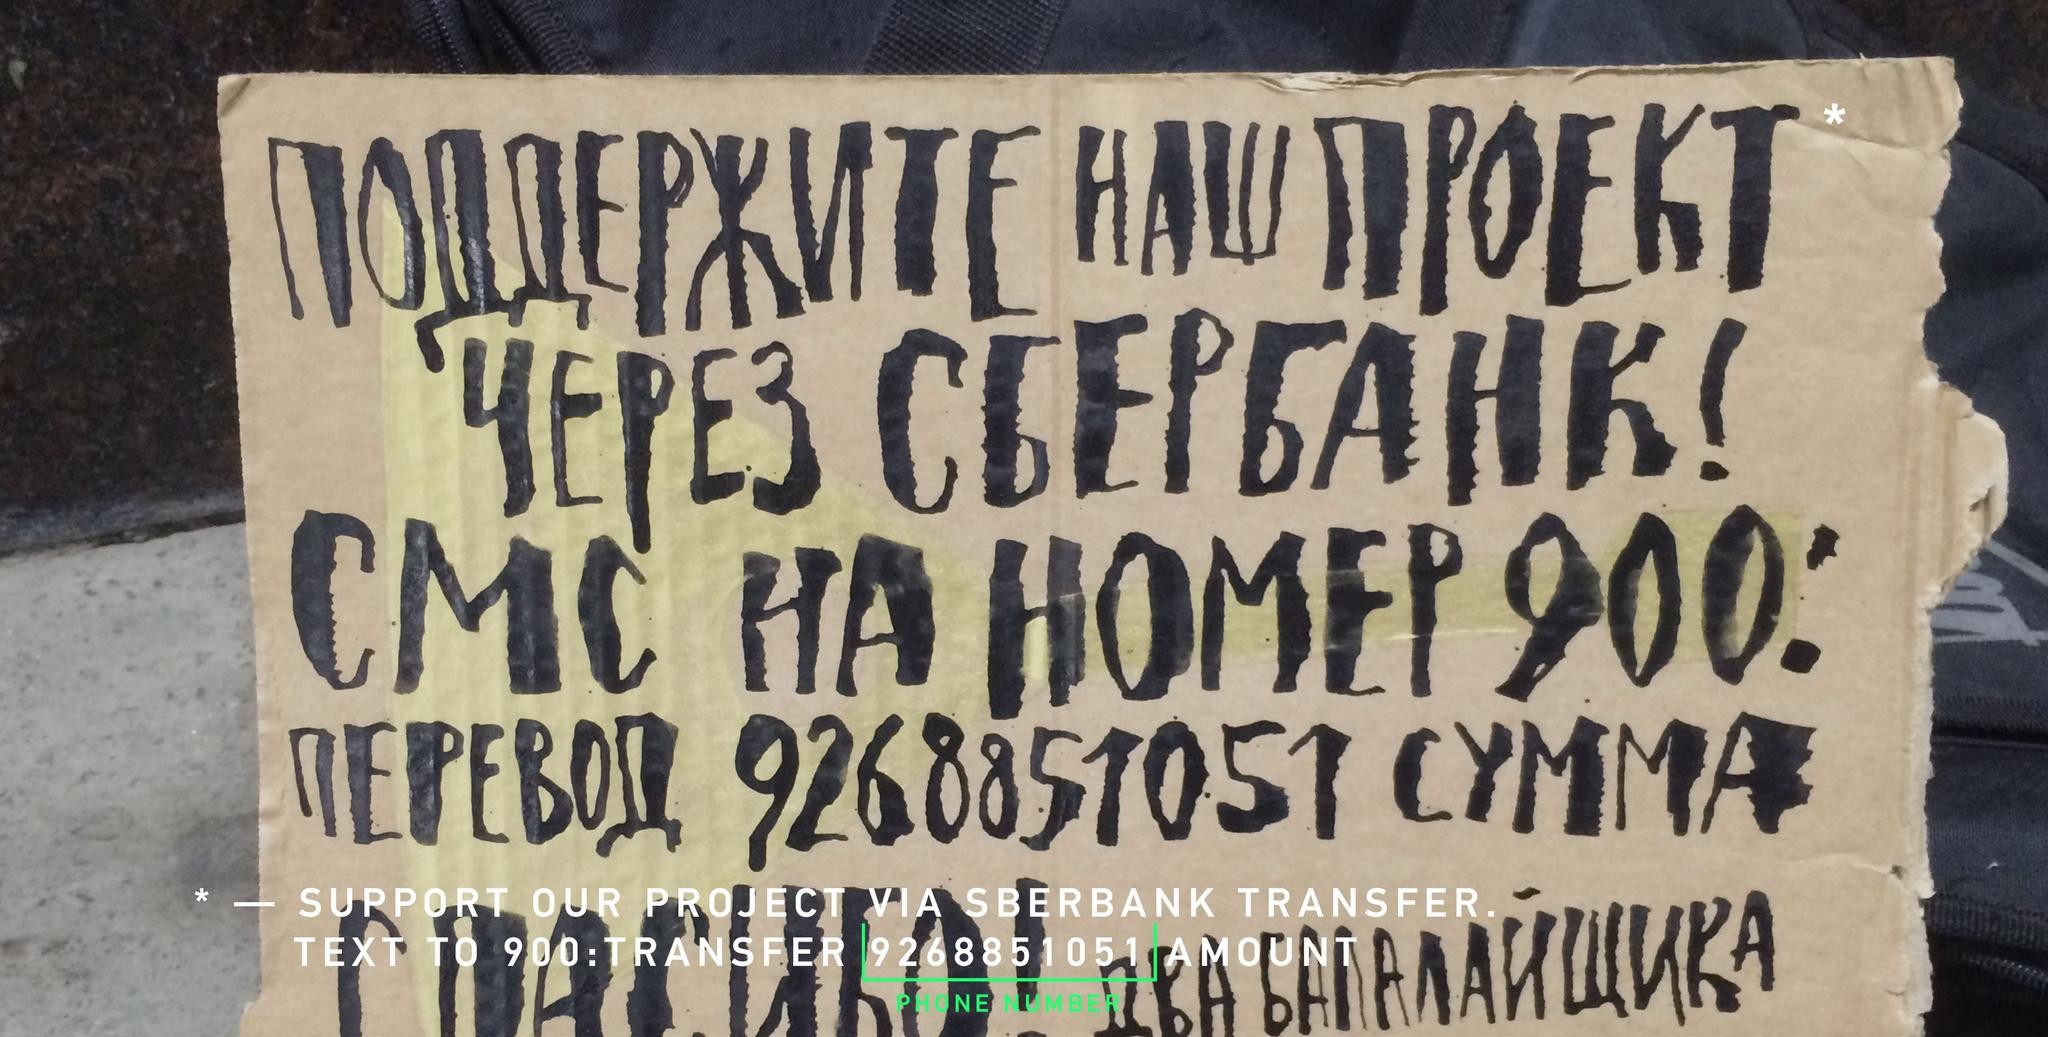 ПОДДЕРЖИТЕ НАШ ПРОЕКТ *
ЧЕРЕЗ СБЕРБАНК!
СМС НА НОМЕР 900:
ПЕРЕВОД 9268851051 СУММА
СПАСИБО! ДВА БАЛАЛАЙЩИКА
* — SUPPORT OUR PROJECT VIA SBERBANK TRANSFER.
TEXT TO 900:TRANSFER 9268851051 AMOUNT
PHONE NUMBER